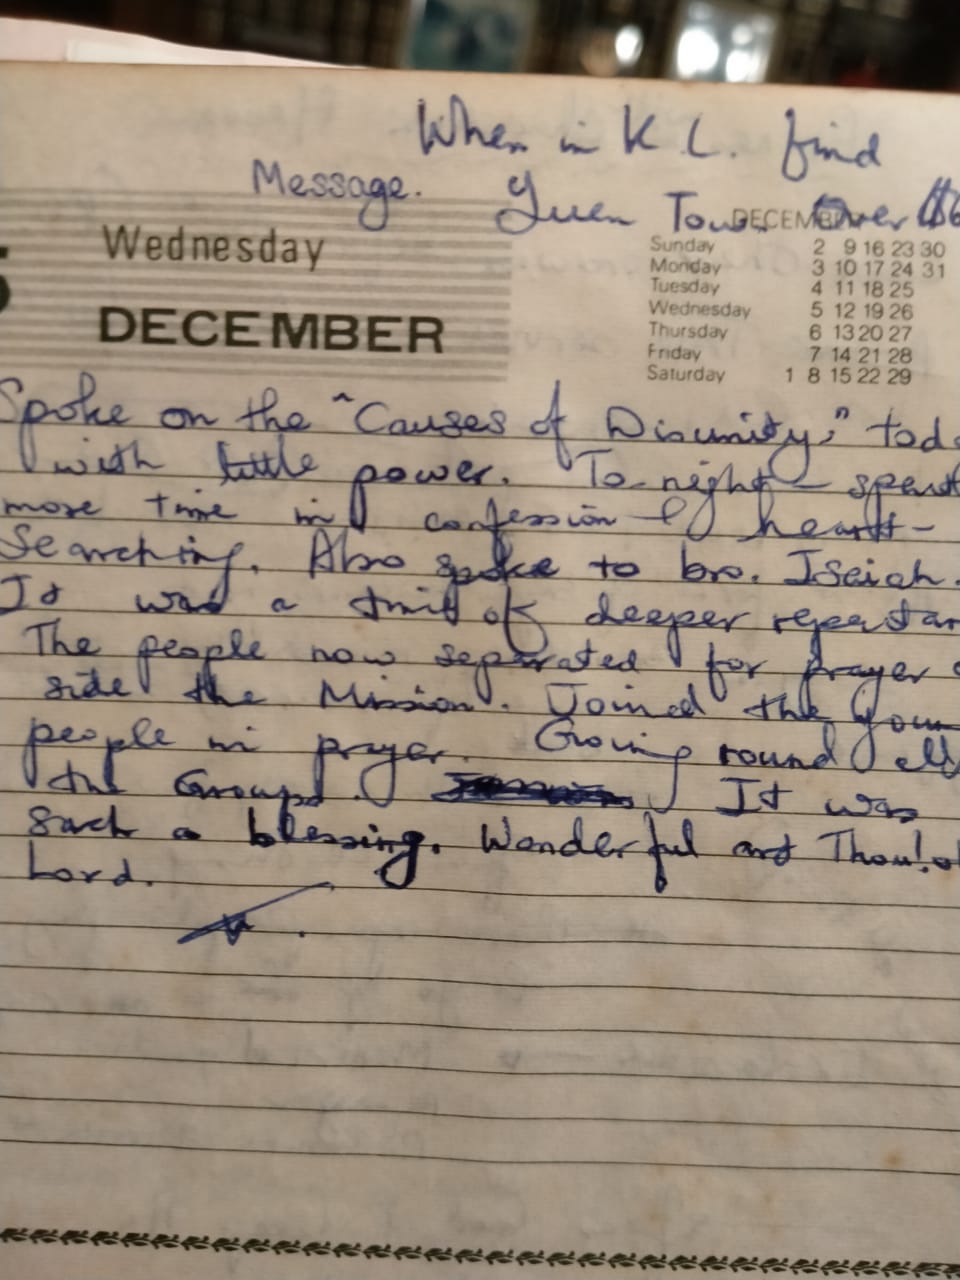 When in K.L. find
Message. Yuen Tow. Over $6
DECEMBER
Wednesday
DECEMBER
Sunday 2 9 16 23 30
Monday 3 10 17 24 31
Tuesday 4 11 18 25
Wednesday 5 12 19 26
Thursday 6 13 20 27
Friday 7 14 21 28
Saturday 1 8 15 22 29
Spoke on the "Causes of Disunity," tod
with little power. To-night spent
more time in confession & heart-
Searching. Also spoke to bro. Isaiah.
It was a time of deeper repentan
The people now separated for prayer
side the Mission. Joined the youn
people in prayer. Going round all
the Groups. It was
such a blessing. Wonderful art Thou! o
Lord.